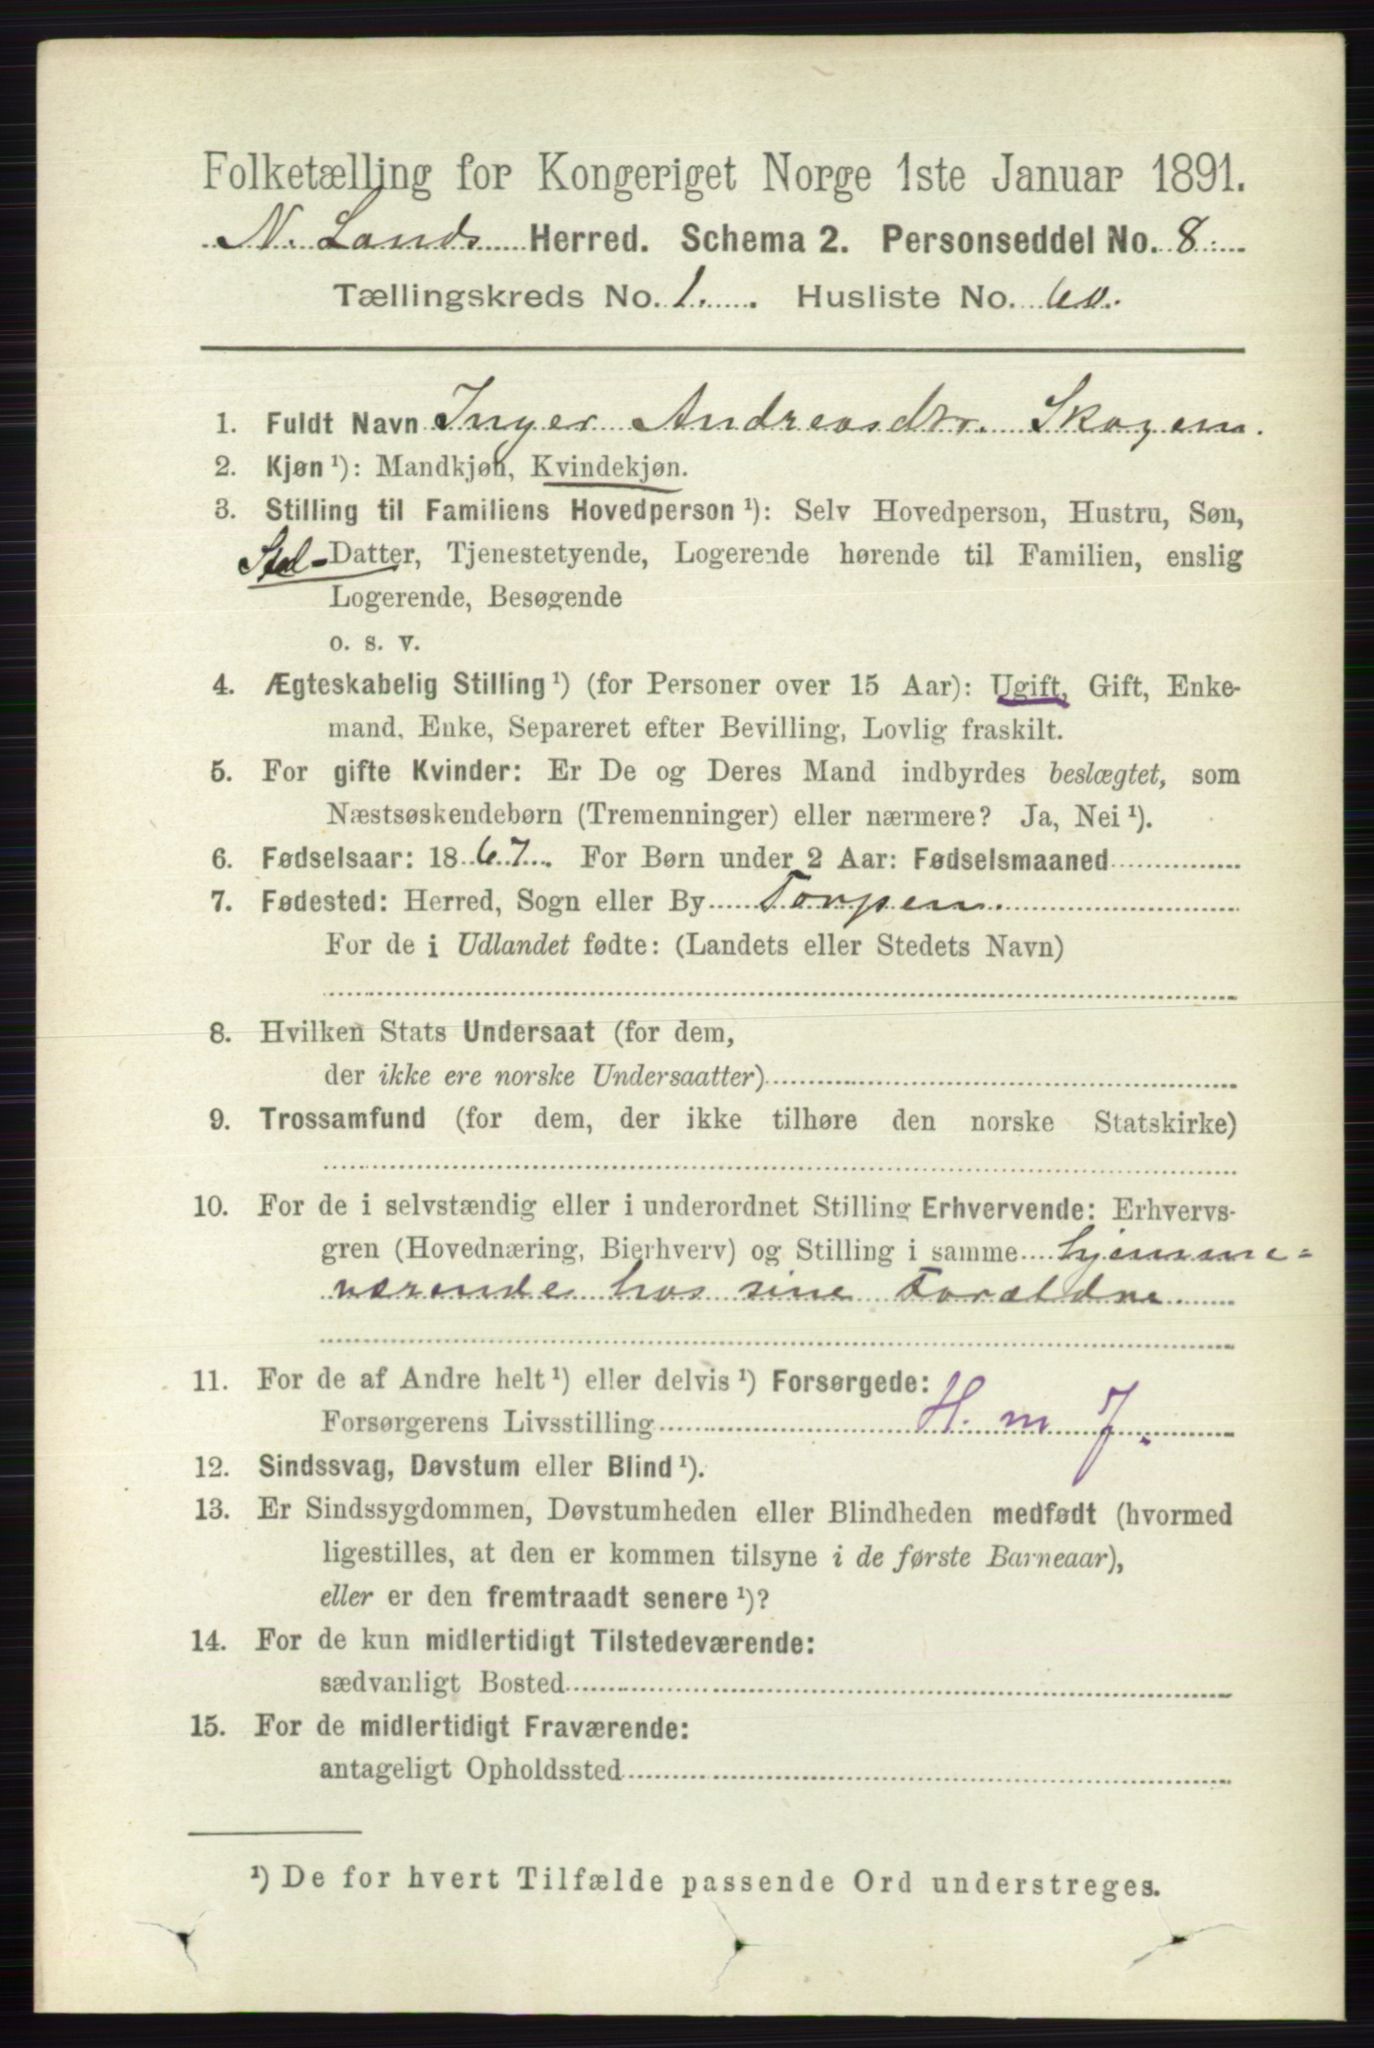 Folketælling for Kongeriget Norge 1ste Januar 1891.
N. Lands Herred. Schema 2. Personseddel No. 8.
Tællingskreds No. 1. Husliste No. 60.
1. Fuldt Navn Inger Andreasdtr. Skogen.
2. Kjøn ¹): Mandkjøn, Kvindekjøn.
3. Stilling til Familiens Hovedperson ¹): Selv Hovedperson, Hustru, Søn,
Sted- Datter, Tjenestetyende, Logerende hørende til Familien, enslig
Logerende, Besøgende
o. s. v.
4. Ægteskabelig Stilling ¹) (for Personer over 15 Aar): Ugift, Gift, Enke-
mand, Enke, Separeret efter Bevilling, Lovlig fraskilt.
5. For gifte Kvinder: Er De og Deres Mand indbyrdes beslægtet, som
Næstsøskendebørn (Tremenninger) eller nærmere? Ja, Nei ¹).
6. Fødselsaar: 1867. For Børn under 2 Aar: Fødselsmaaned
7. Fødested: Herred, Sogn eller By Torpen.
For de i Udlandet fødte: (Landets eller Stedets Navn)
8. Hvilken Stats Undersaat (for dem,
der ikke ere norske Undersaatter)
9. Trossamfund (for dem, der ikke tilhøre den norske Statskirke)
10. For de i selvstændig eller i underordnet Stilling Erhvervende: Erhvervs-
gren (Hovednæring, Bierhverv) og Stilling i samme hjemme-
værende hos sine Forældre
11. For de af Andre helt ¹) eller delvis ¹) Forsørgede:
Forsørgerens Livsstilling H. m J.
12. Sindssvag, Døvstum eller Blind ¹).
13. Er Sindssygdommen, Døvstumheden eller Blindheden medfødt (hvormed
ligestilles, at den er kommen tilsyne i de første Barneaar),
eller er den fremtraadt senere ¹)?
14. For de kun midlertidigt Tilstedeværende:
sædvanligt Bosted
15. For de midlertidigt Fraværende:
antageligt Opholdssted
¹) De for hvert Tilfælde passende Ord understreges.